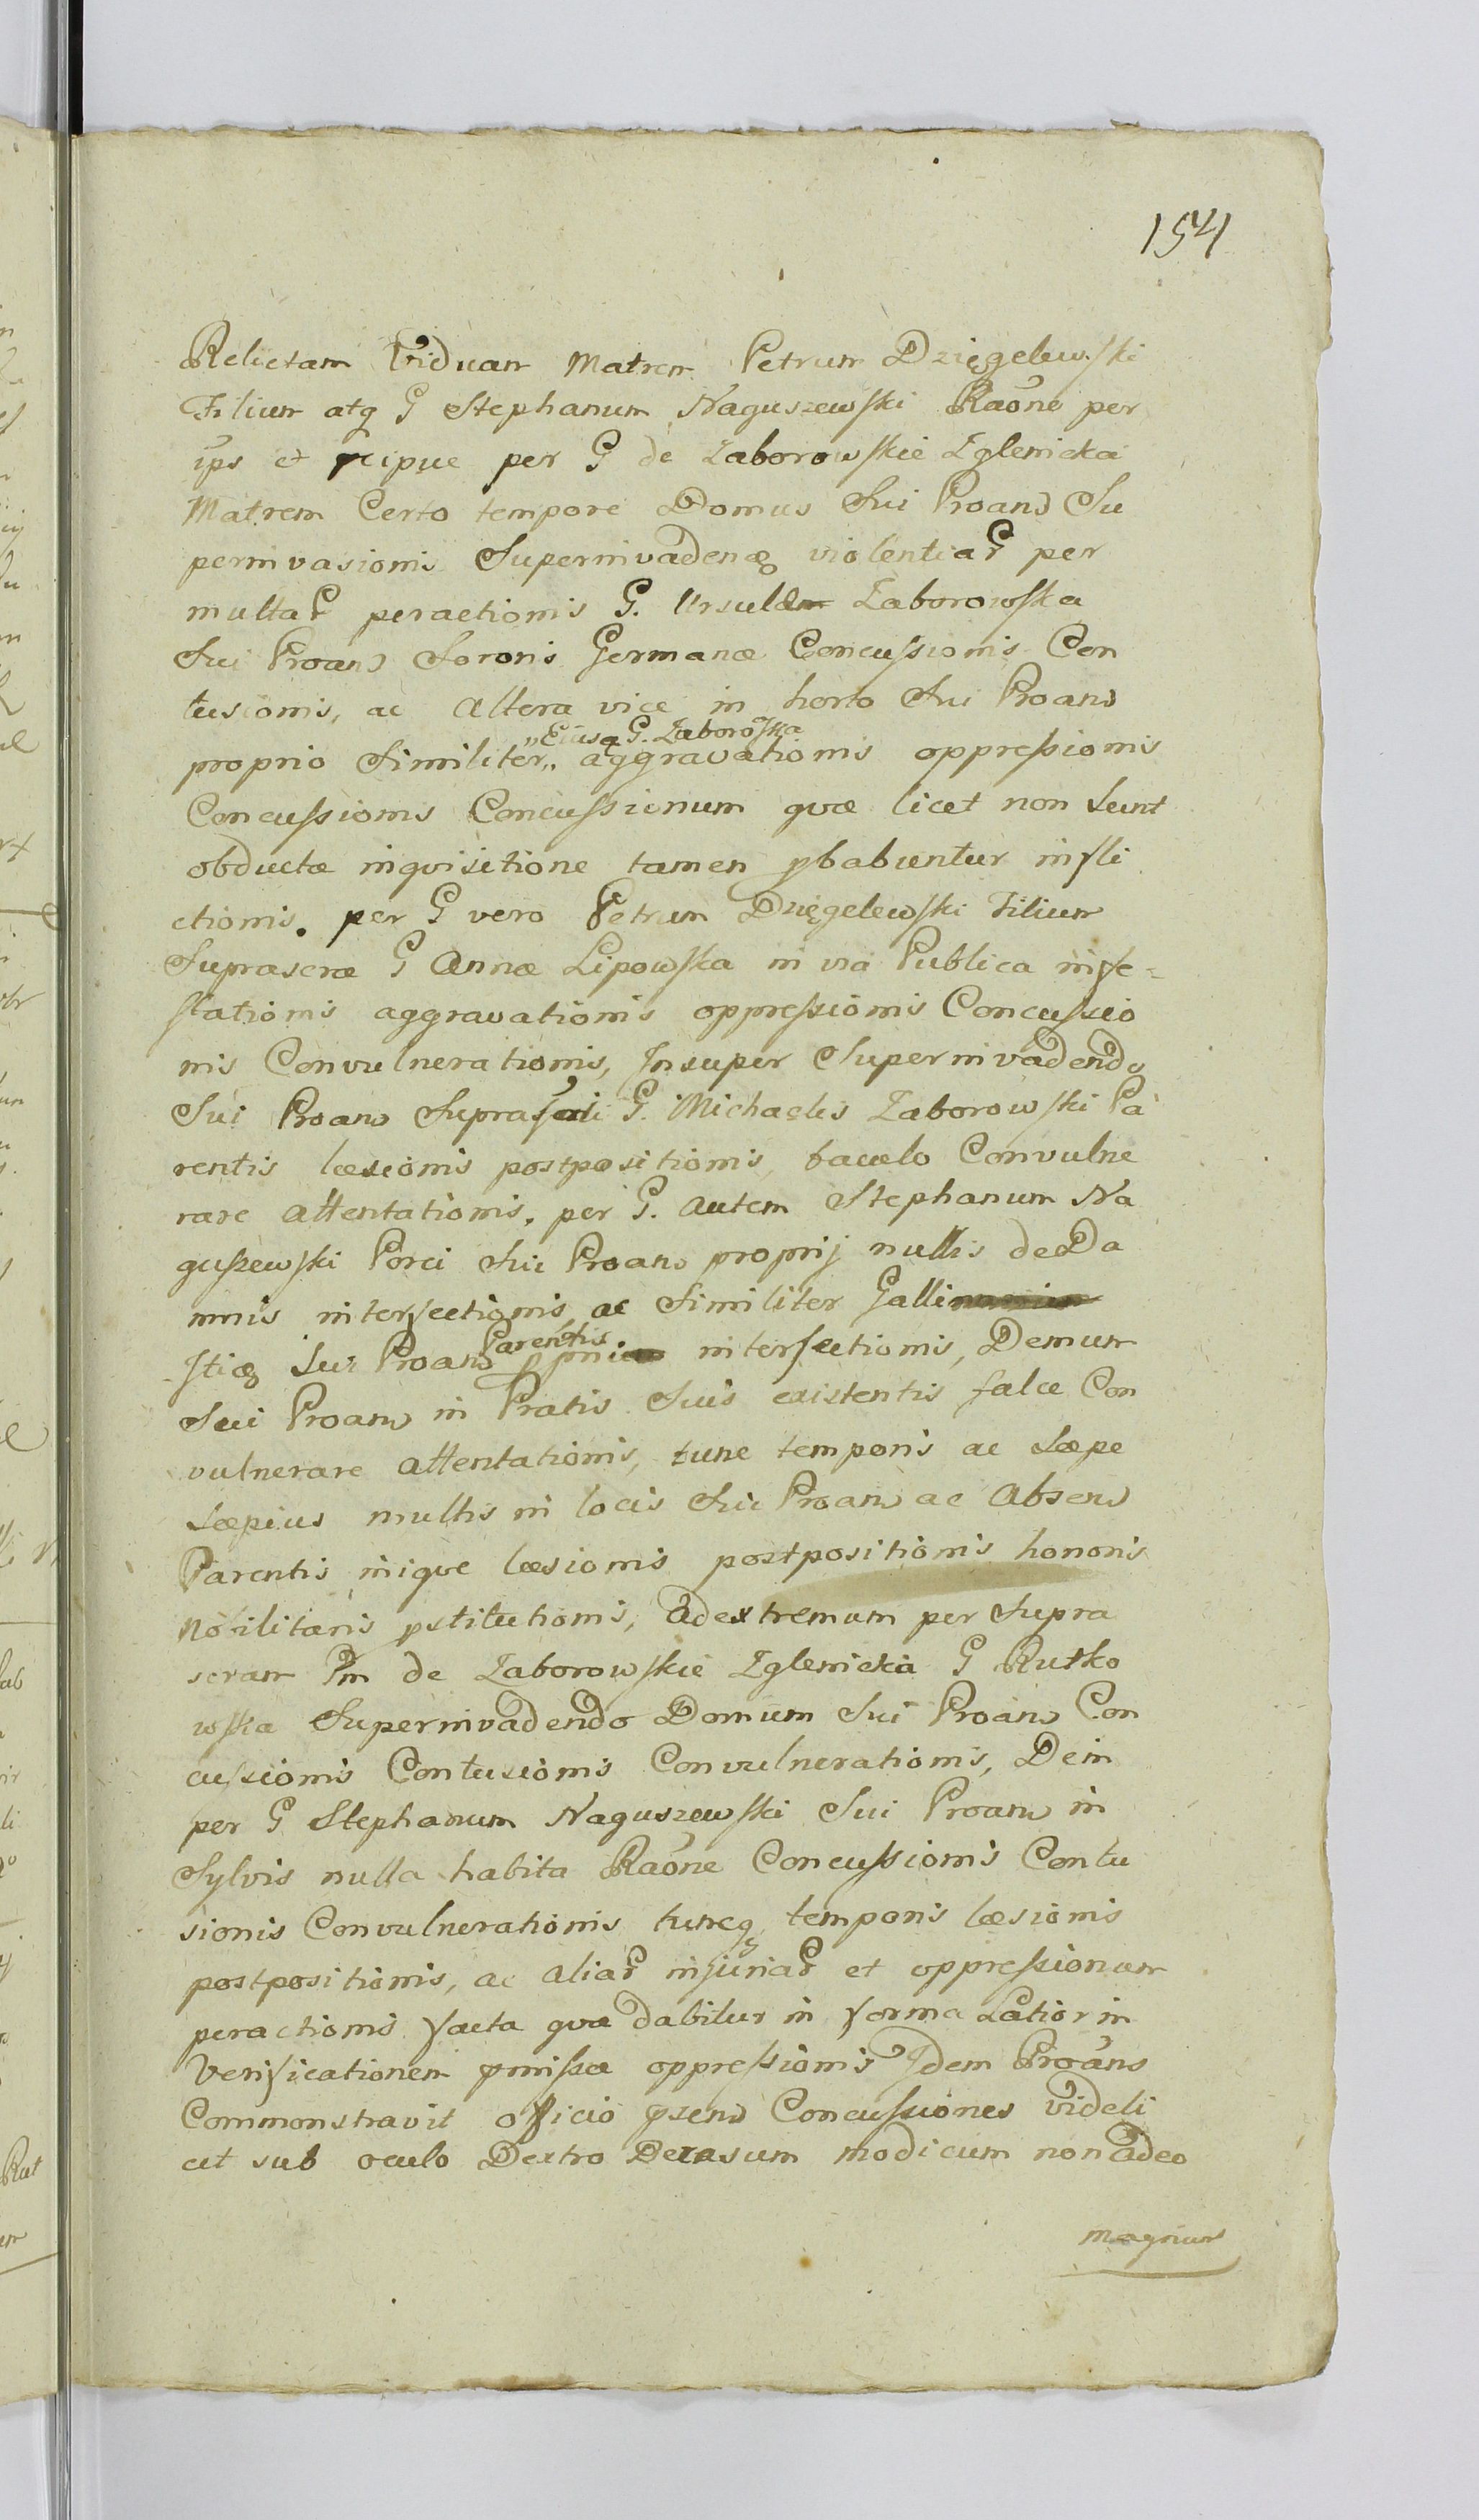 154
Relictam Viduam Matrem Petrum Dzięgelewski
Filium atq G Stephanum Naguszewski Raõne per
ips et pcipue per G de Zaborowskie Zglenicka
Matrem Certo tempore Domus Sui Proand Su
perinvasionis Superinvadenq violentiar per
multar peractionis G. Ursulæ Zaborowska
Sui Proand Sororis Germanæ Concussionis Con
tusionis, ac altera vice in horto Sui Proand
„Eiusq G. Zaborõska
proprio Similiter„ aggravationis oppressionis
Concussionis Concussionum quæ licet non sunt
obductæ inquisitione tamen pbabuntur infli
ctionis. per G vero Petrum Dzięgelewski Filium
Suprascræ G Annæ Lipowska in via Publica infe=
stationis aggravationis oppressionis Concussio
nis Convulnerationis, Insuper Superinvadendo
Sui Proand Suprascri G. Michaelis Zaborowski Pa
rentis læsionis postpositionis, baculo Convulne
rare attentationis, per G. autem Stephanum Na
guszewski Porci Sui Proand proprij nullis de Da
mnis interfectionis, ac Similiter Galli
Parentis
sticq Sui Proand ppri interfectionis, Demum
Sui Proand in Pratis Suis existentis falce Con
vulnerare attentationis, tunc temporis ac Sæpe
Sæpius multis in locis Sui Proand ac Absend
Parentis inique læsionis postpositionis honoris
Nobilitaris pstitutionis, ad extremum per Supra
scram Pm de Zaborowskie Zglenicka G Rutko
wska Superinvadendo Domum Sui Proand Con
cussionis Contusionis Convulnerationis, Dein
per G Stephanum Naguszewski Sui Proand in
Sylvis nulla habita Raõne Concussionis Contu
sionis Convulnerationis tuncq temporis læsionis
postpositionis, ac aliar injuriar et oppressionum
peractionis facta quæ dabitur in forma Latior in
Verificationem pmissæ oppressionis Idem Proãns
Commonstravit officio psend Concussiones videli
cet sub oculo Dextro Derasum modicum non adeo
magnum